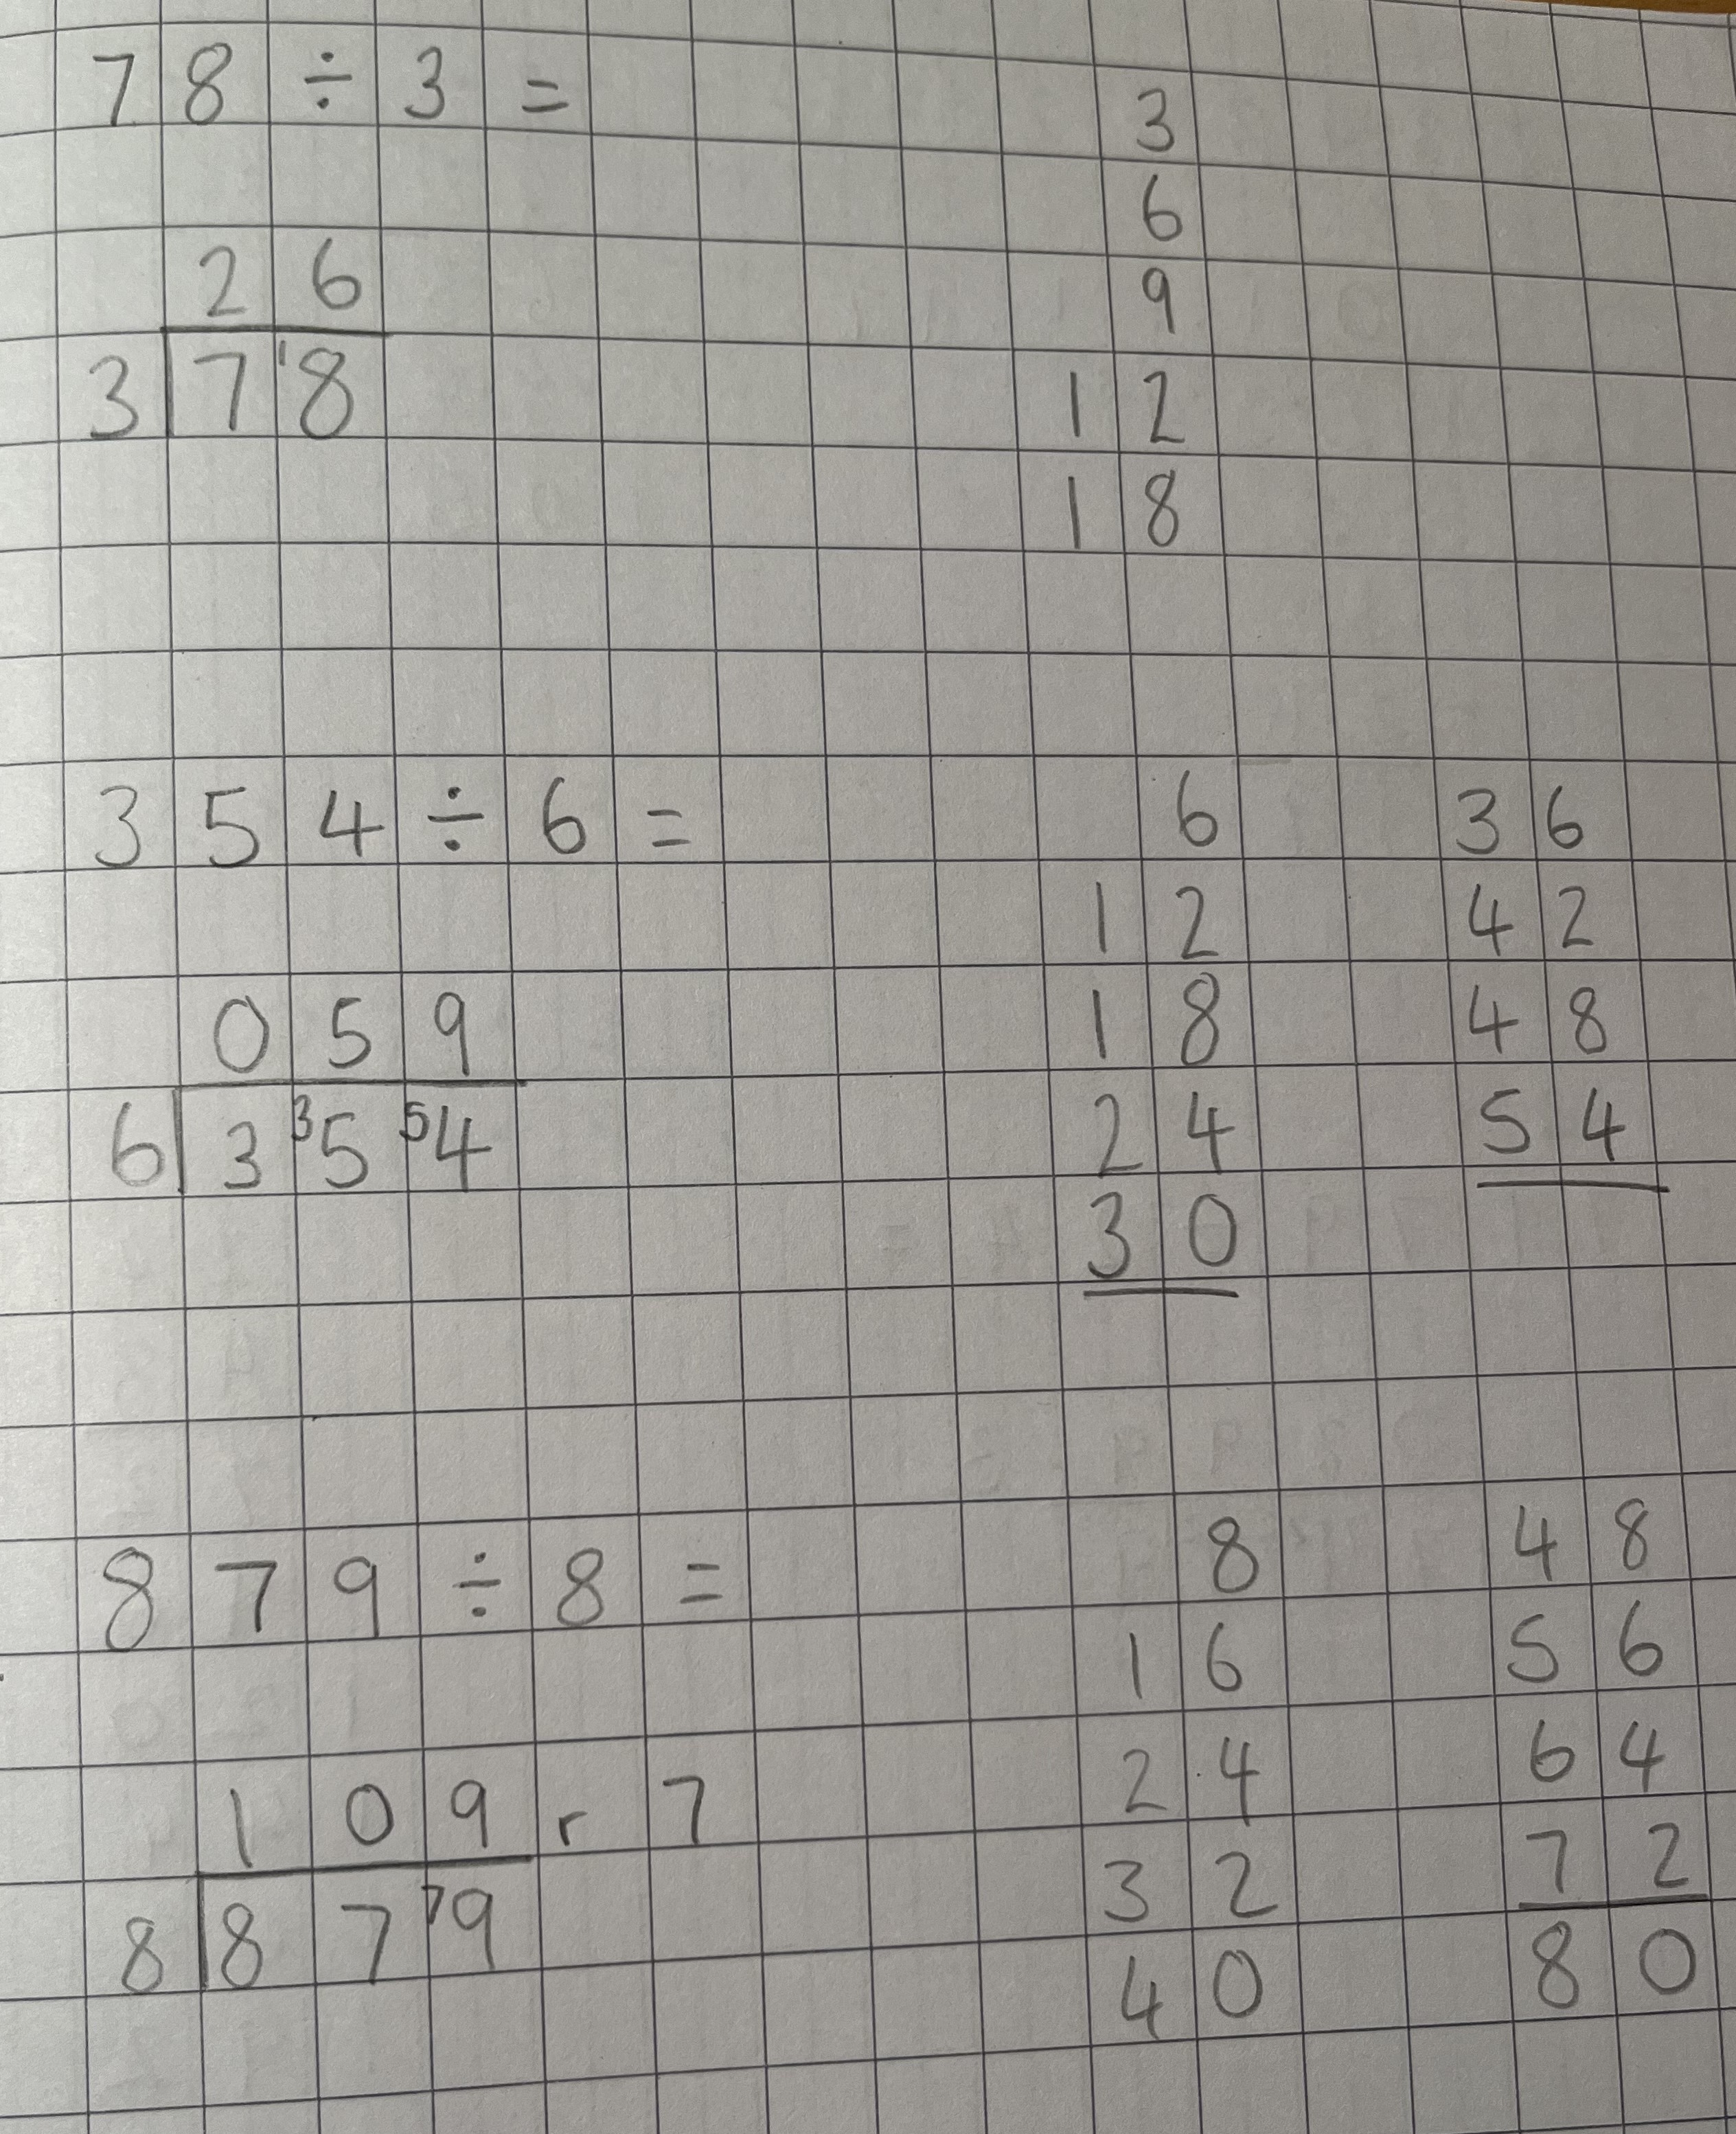 78 ÷ 3 =
26
3 7 ¹8
3
6
9
12
18
354 ÷ 6 =
059
6 3 ³5 ⁵4
6
12
18
24
30
36
42
48
54
879 ÷ 8 =
109 r 7
8 8 7 ⁷9
8
16
24
32
40
48
56
64
72
80